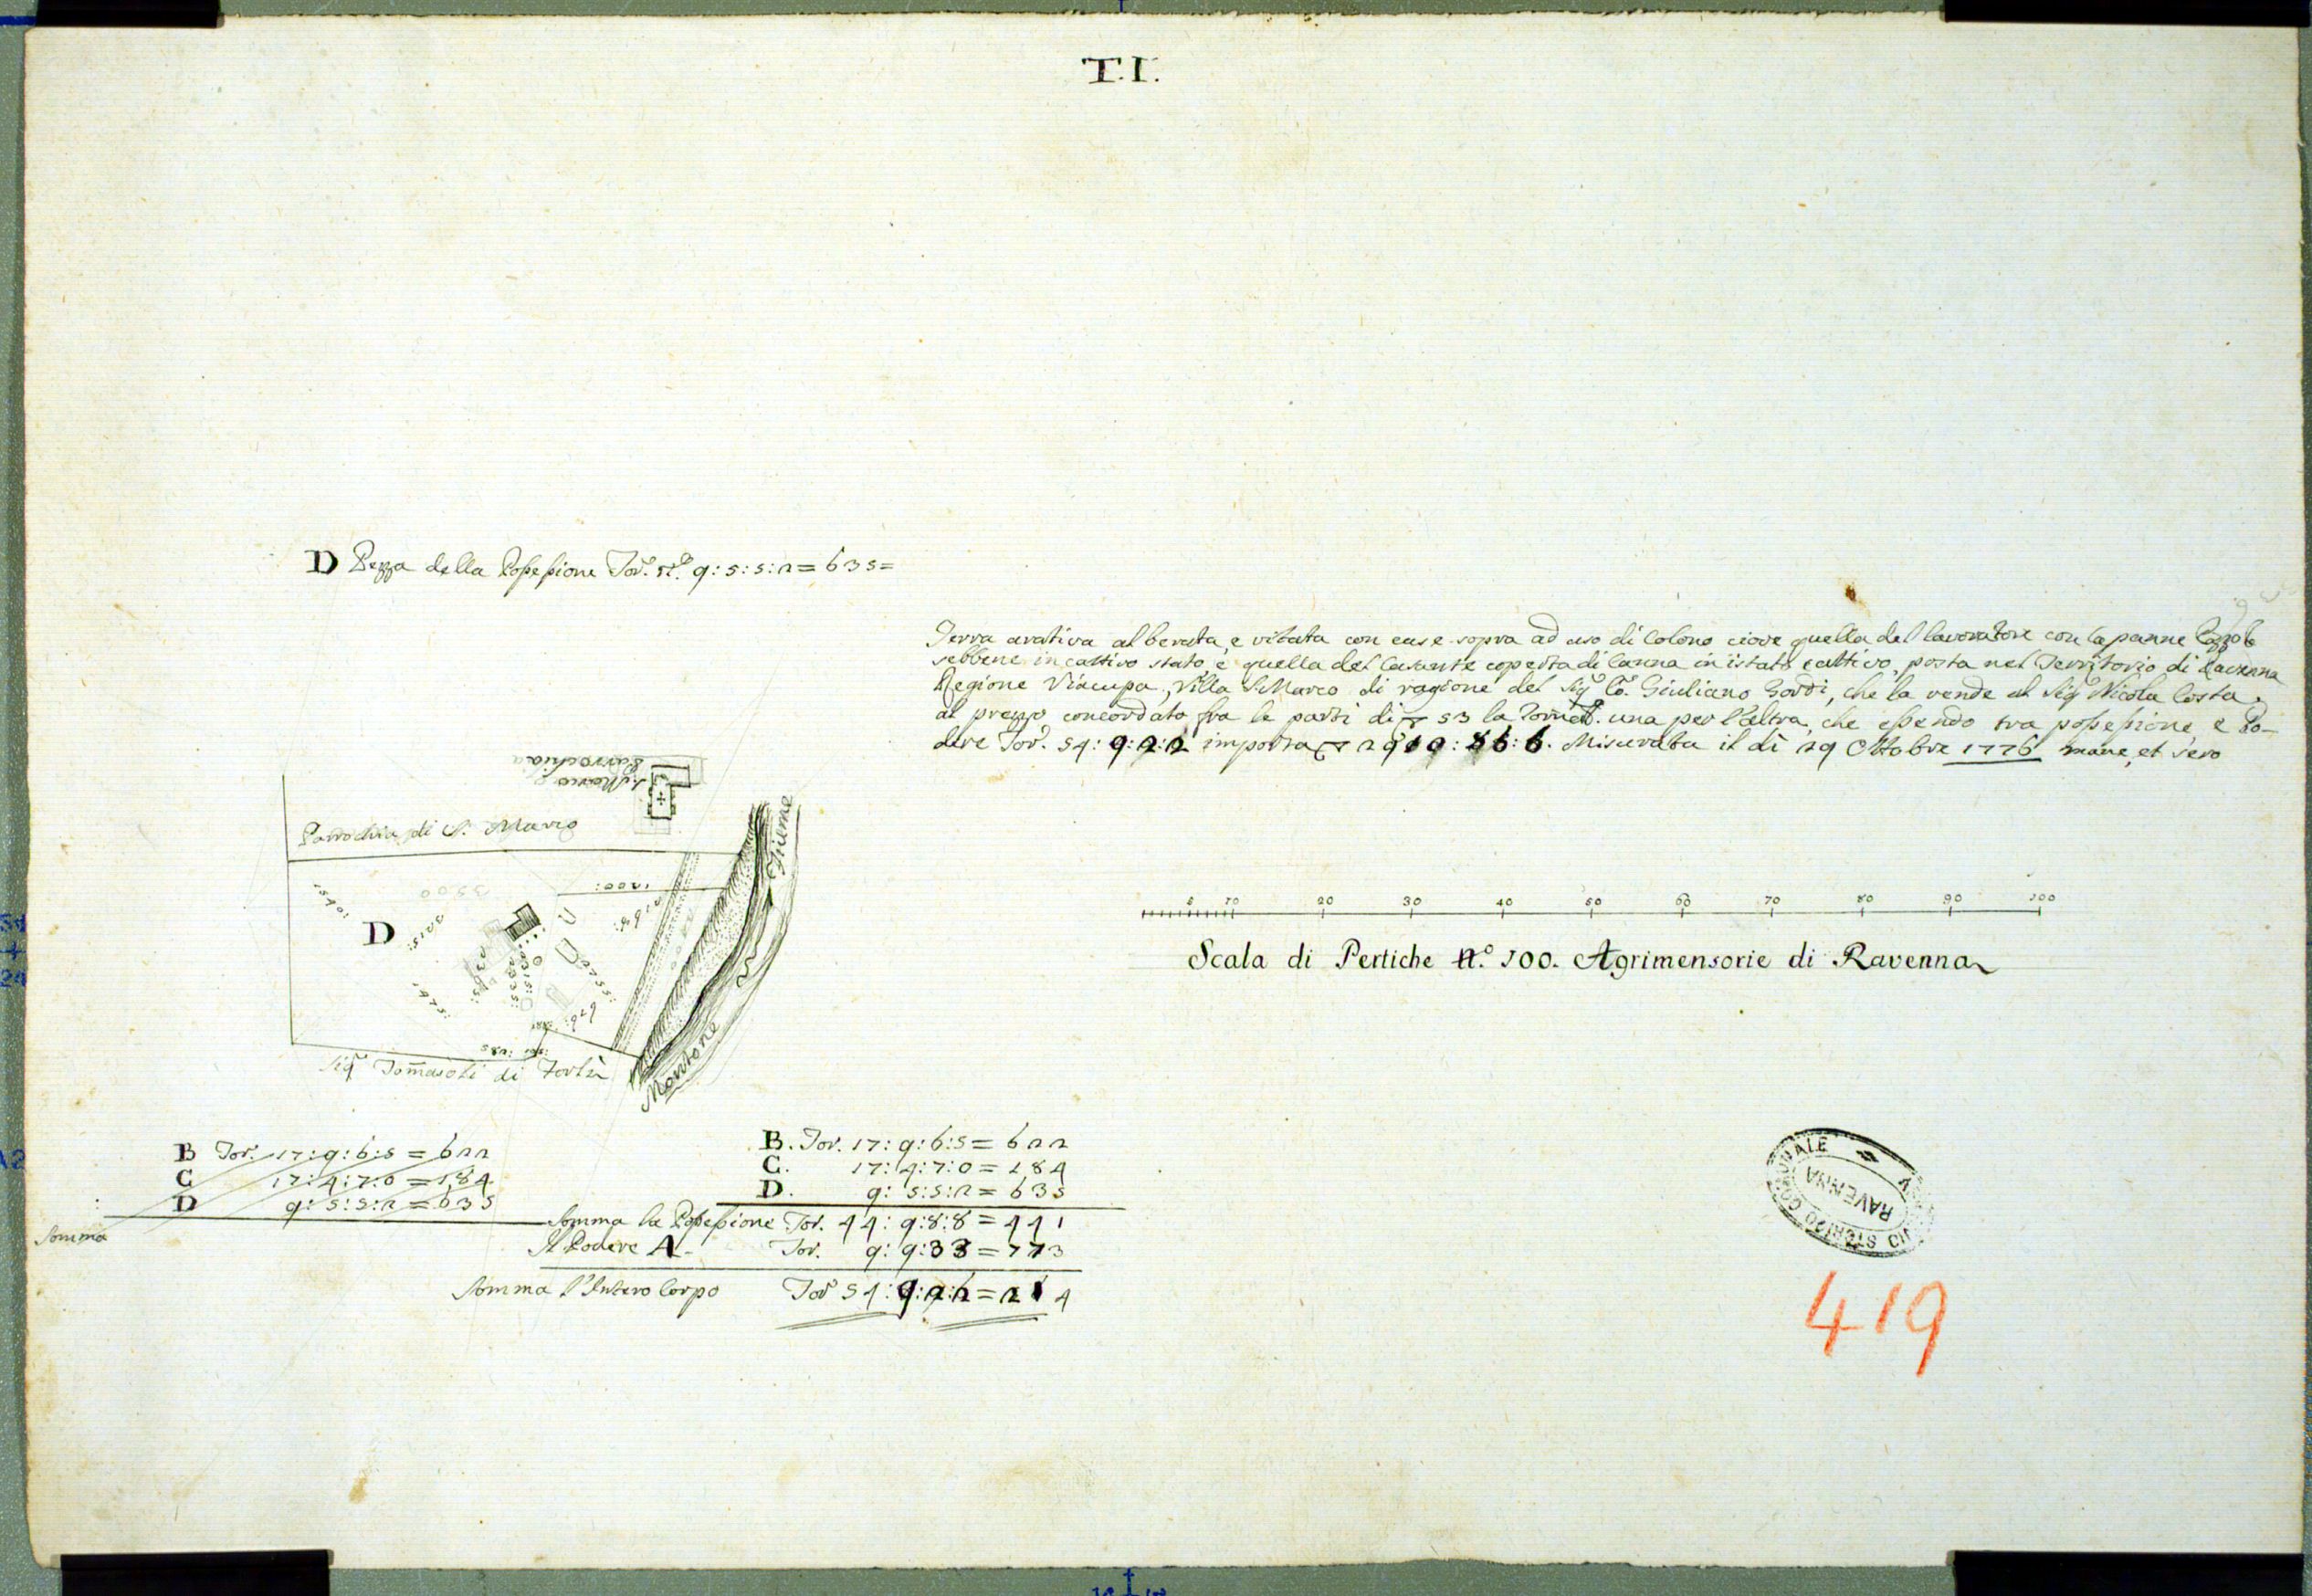 T.I.
D Pezza della Possessione Tor.e N.o 9:5:5:2=635=
Terra arativa alberata, e vitata con case sopra ad uso di Colono cioè quella del lavoratore con capanne
sebbene in cattivo stato, e quella del Casante coperta di Canna in istato cattivo, posta nel Territorio di Ravenna
Regione Viacupa, Villa S. Marco di ragione del Sig.r Co. Giuliano Gordi, che la vende al Sig.r Nicola Costa,
al prezzo concordato fra le parti di 53 la Tornat. una per l'altra, che essendo tra possessione, e Po-
dere Tor.e 54: importa Misurata il dì 29 Ottobre 1776 mane, et sero
S. Marco
Parrochia
Parrochia di S. Marco
Fiume
3500
1200:
D
1475:
Sig.r Tommasoli di Forlì
Montone
5 10 20 30 40 50 60 70 80 90 100
Scala di Pertiche N.o 100. Agrimensorie di Ravenna
B Tor. 17:9:6:5=622
C 17:4:7:0=184
D 9:5:5:2=635
Somma
B. Tor. 17:9:6:5=622
C. 17:4:7:0=184
D. 9:5:5:2=635
Somma la Possessione Tor. 44:9:8:8=441
Il Podere A. Tor. 9:9:33=773
Somma l'Intero Corpo Tor.e 54:
STORICO COMUNALE
RAVENNA
419